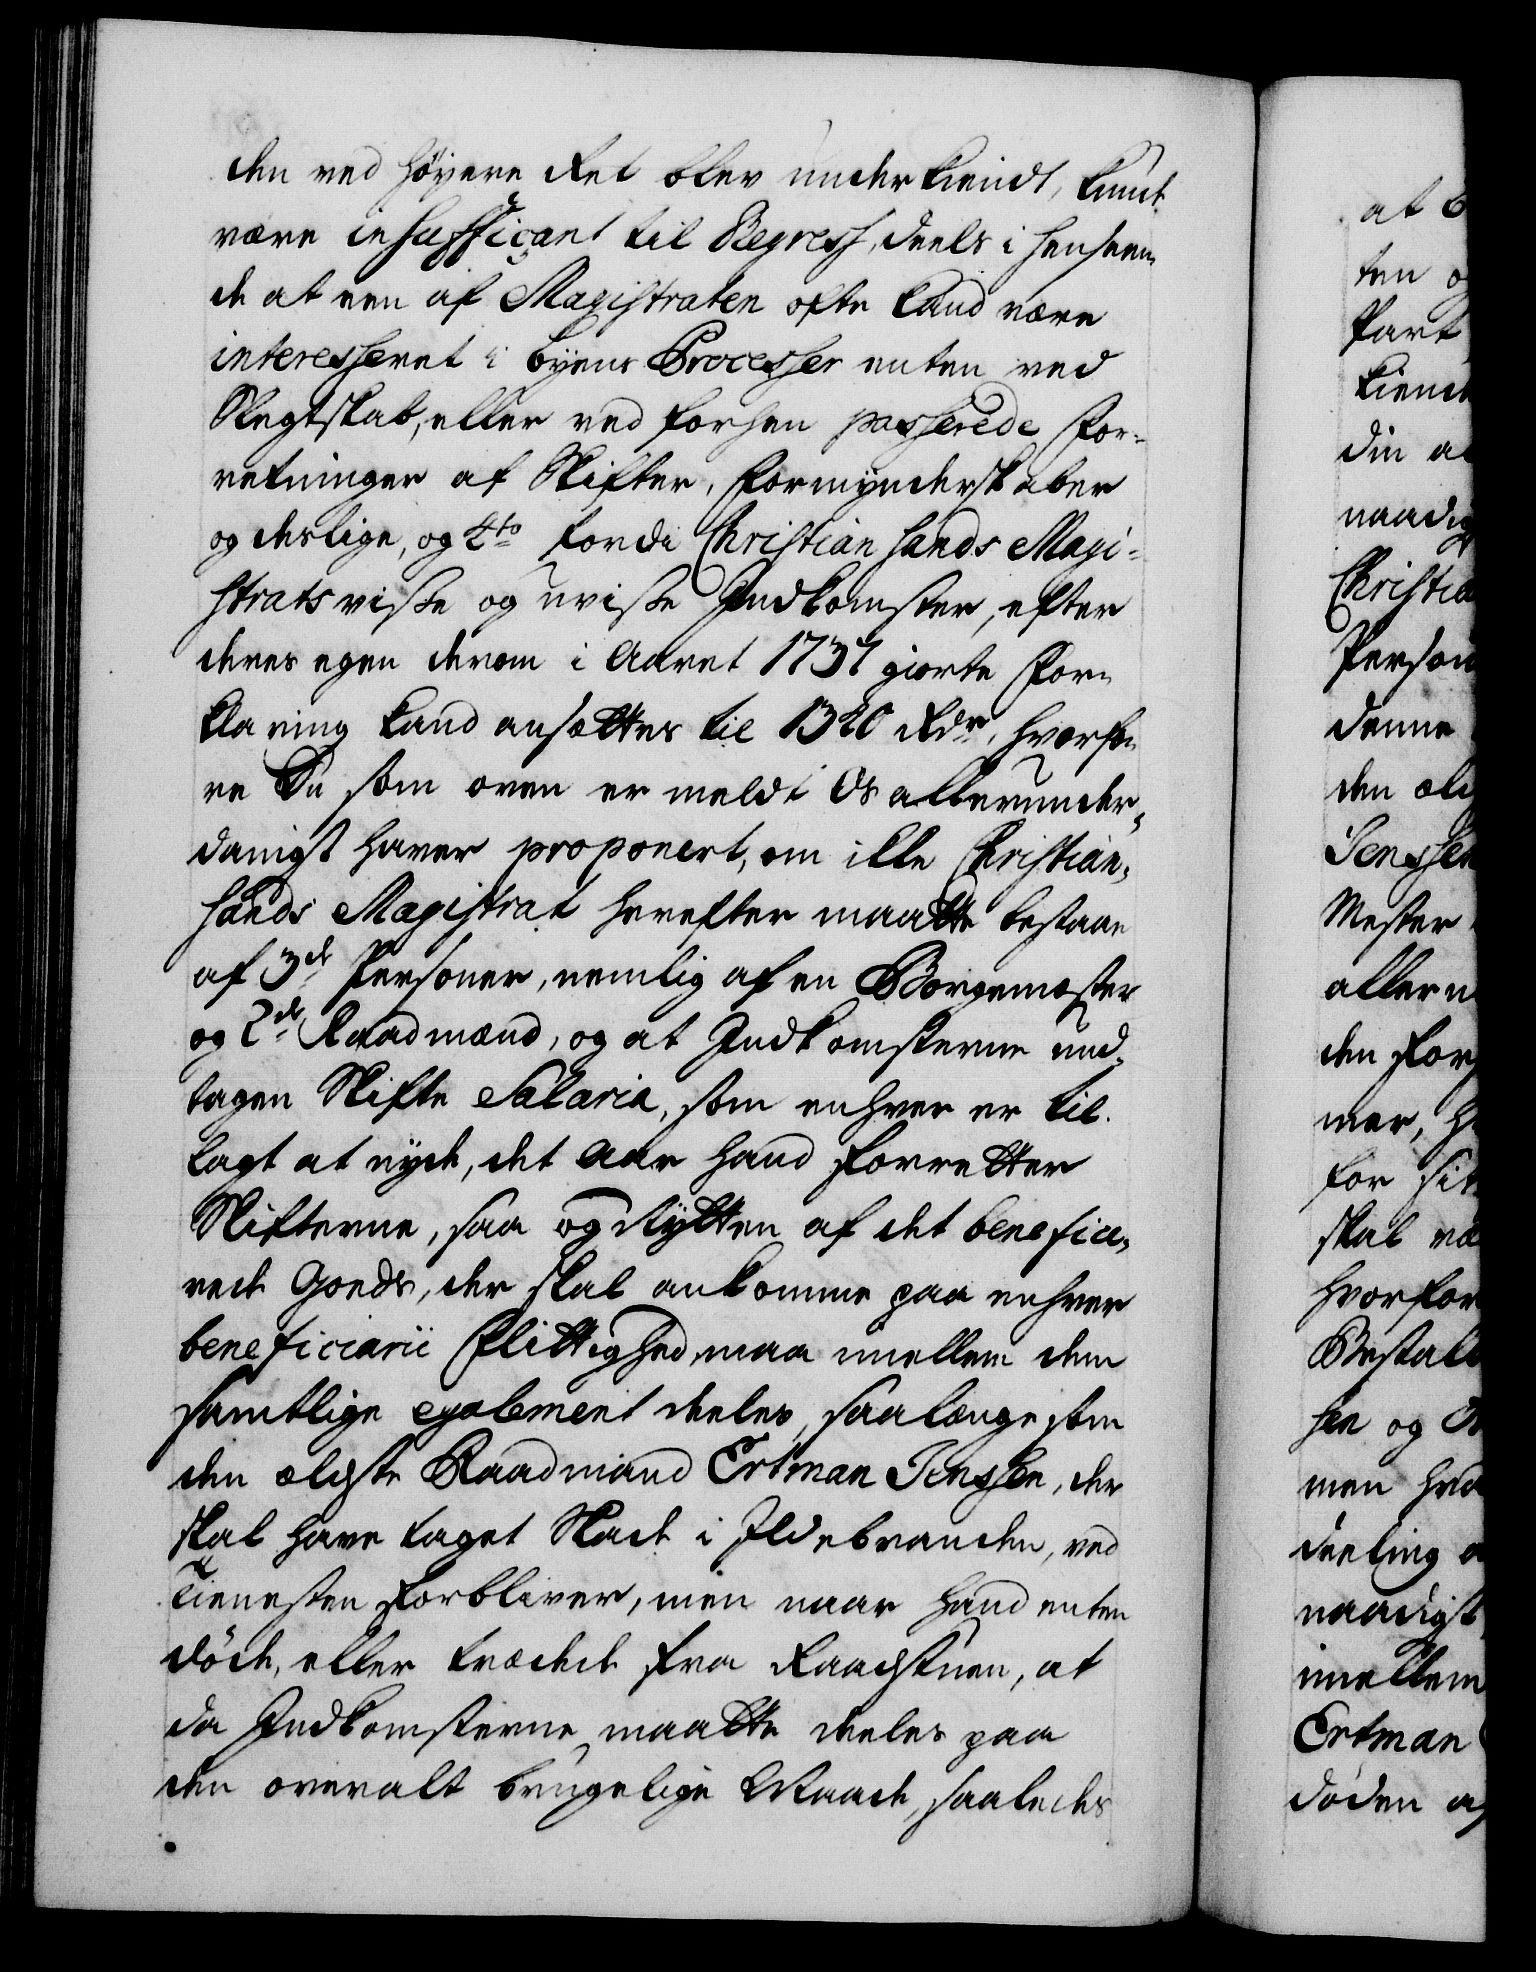 den ved höyere Ret blev underkiendt, kunde
være insufficant til Regress, deels i henseen-
de at een af Magistraten ofte kand være
interesseret i byens Processer enten ved
Slegtskab, eller ved forhen passerede For-
retninger af Skifter, Formynderskaber
og deslige, og 4to fordi Christiansands Magi-
strats visse og uvisse Indkomster, efter
deres egen derom i Aaret 1737 giorte For-
klaring kand ansættes til 1320 Rdr, hvorfo-
re Du som oven er meldt Os allerunder-
danigst haver proponert, om ikke Christian-
sands Magistrat herefter maatte bestaae
af 3de Personer, nemlig af en Borgemester
og 2de Raadmænd, og at Indkomsterne und-
tagen Skifte Salaria, som enhver er til-
lagt at nyde, det Aar hand forretter
Skifterne, saa og Nytten af det benefice-
rede Goeds, der skal ankomme paa enhver
beneficiarii Flittighed, maa imellem dem
samtlige egalement deeles, saalænge som
den ældste Raadmand Ertman Jenssen, der
skal have taget Skade i Ildebranden, ved
Tienesten forbliver, men naar hand enten
döde, eller trædede fra Raadstuen, at
da Indkomsterne maatte deeles paa
den overalt brugelige Maade, saaledes
at
ten
Part
kiend
din
naadig
Christia
Person
denne
den æld
Jenssen
Mester
allern
den For
mer,
for sit
skal væ
hvorfor
Bestall
sen og
men hva
deeling
naadigst
imellem
Ertman
döden